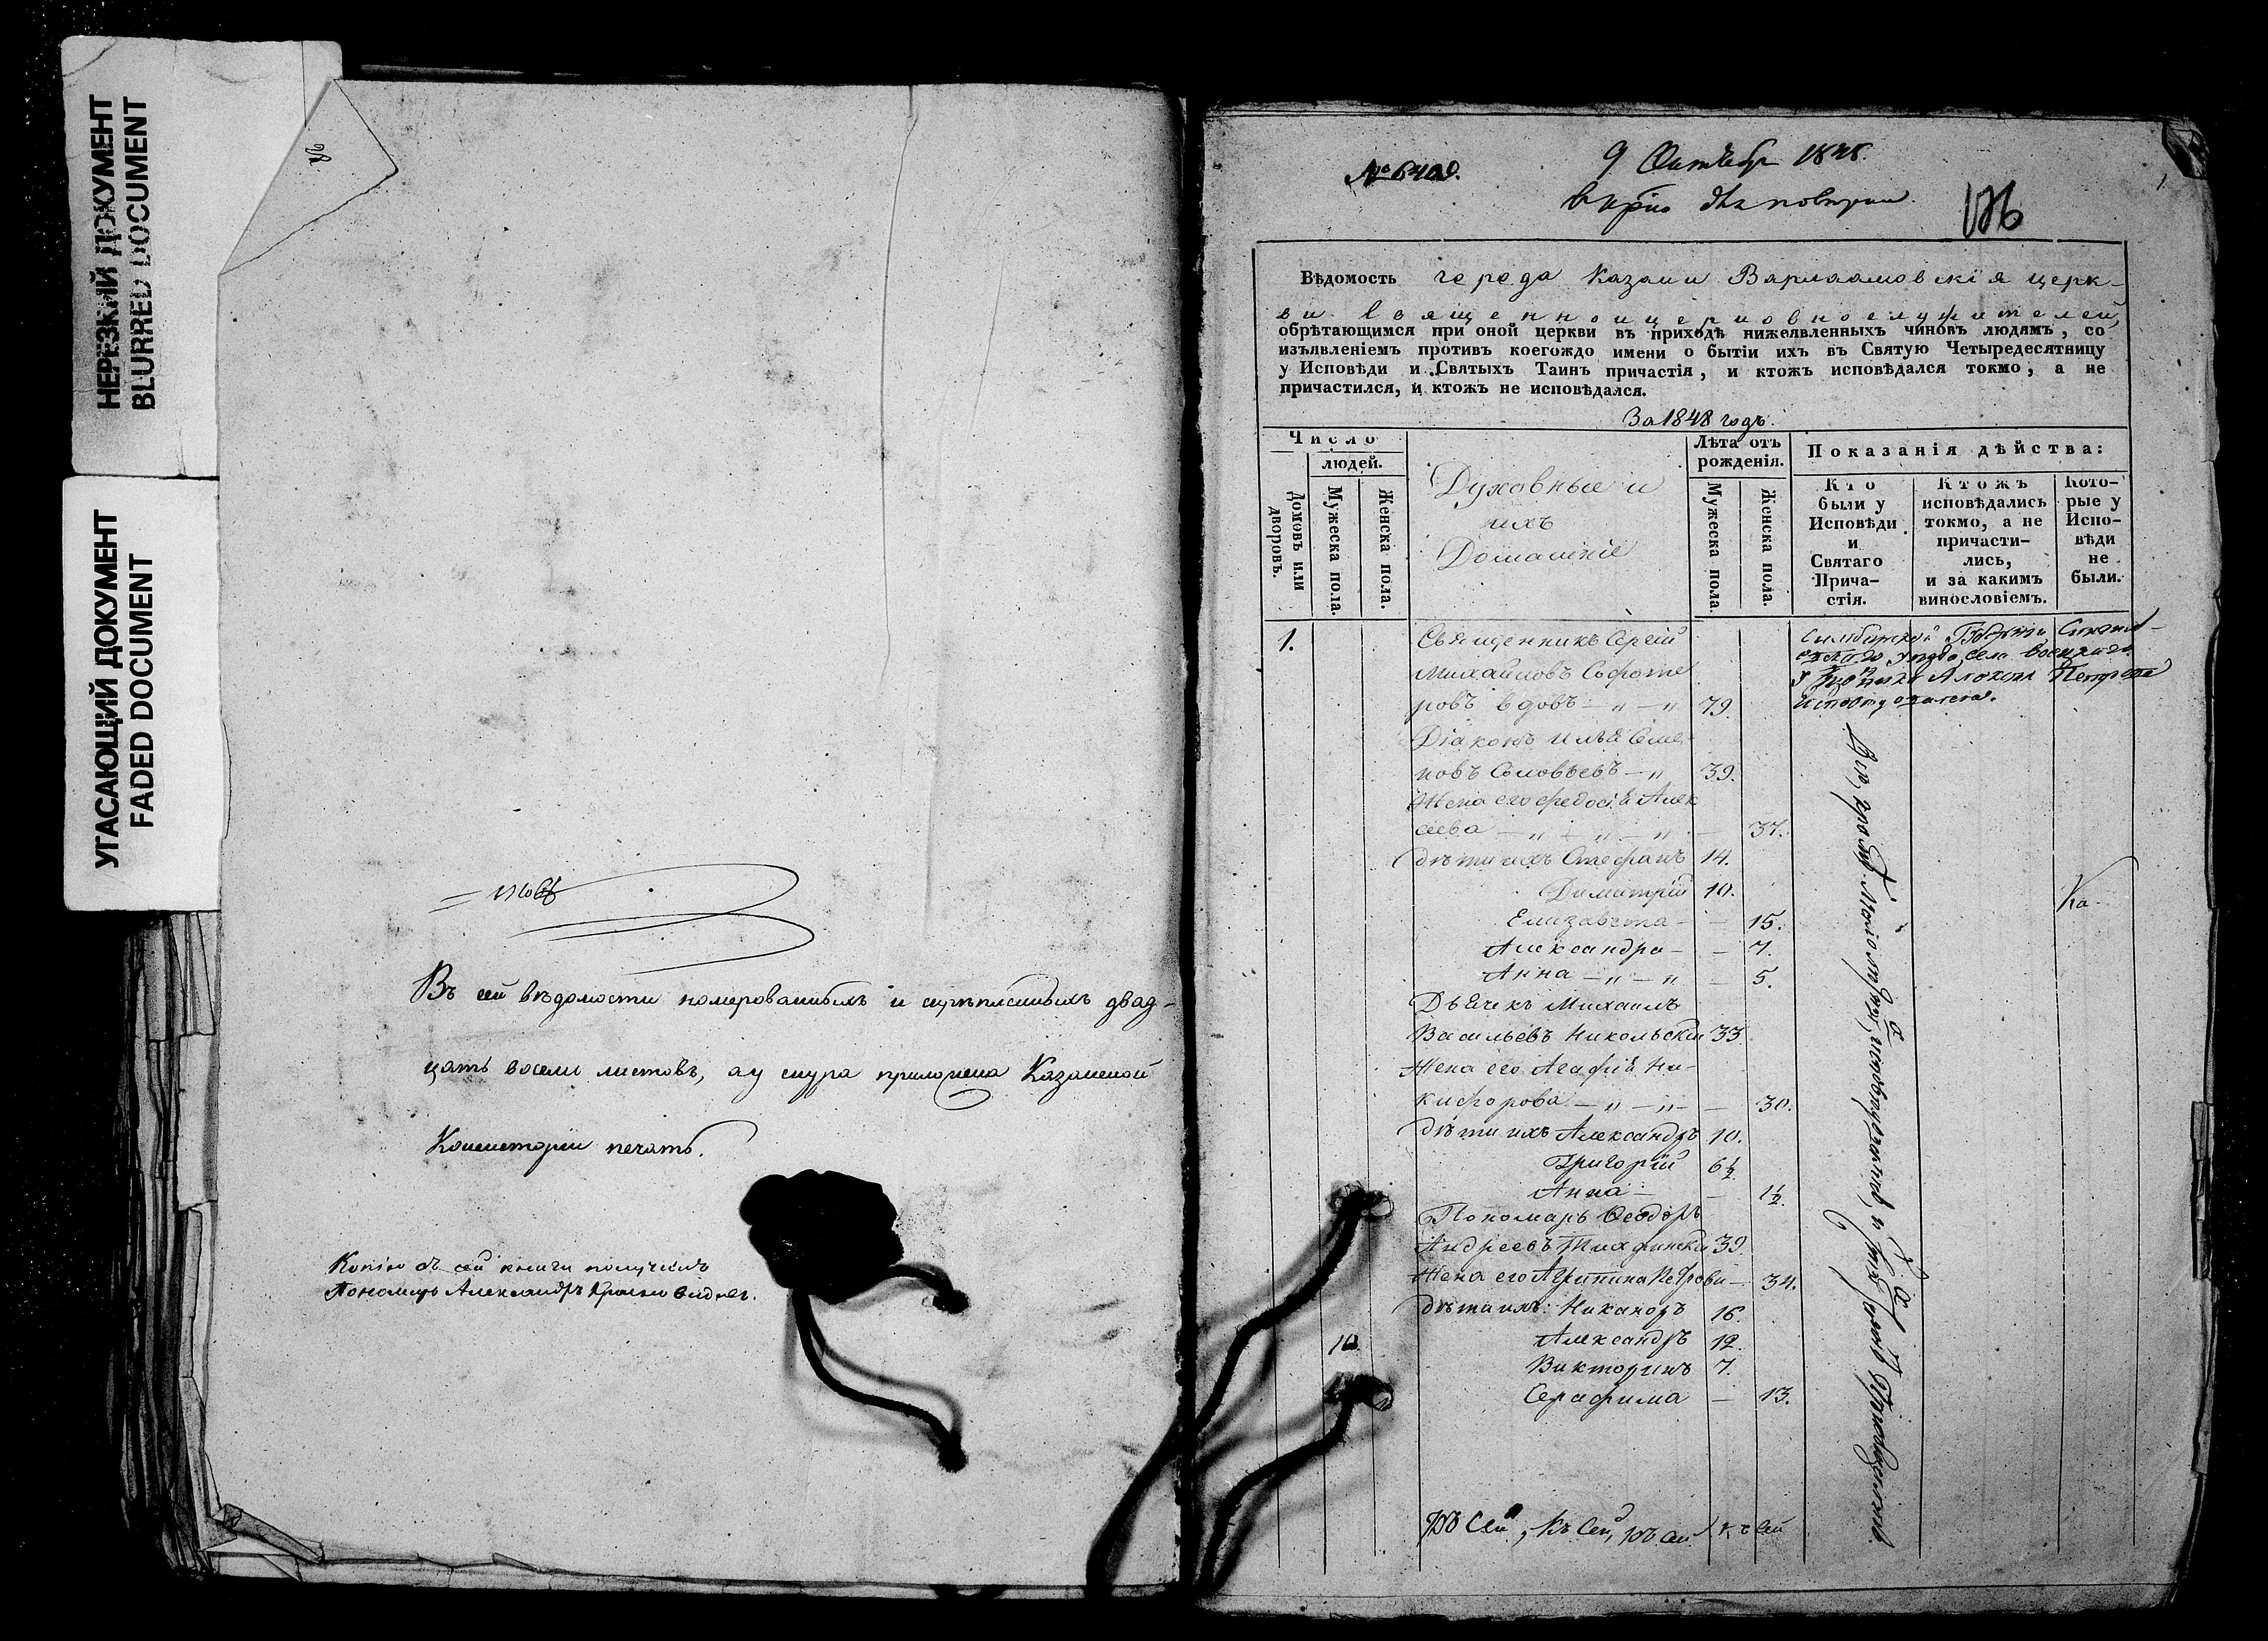 НЕРЕЗКИЙ ДОКУМЕНТ
BLURRED DOCUMENT
УГАСАЮЩИЙ ДОКУМЕНТ
FADED DOCUMENT
Въ сей вѣдомости номерованныхъ и скрѣпленныхъ двад-
цать восемь листовъ, а у снура приложена Казанской
Консисторіи печать.
Копію съ сей книги получилъ
Пономарь Александръ
№ 6409.
9 Октября 1848.
126
1
Вѣдомость города Казани Варлаамовскія церк-
ви Священноицерковнослужителей,
обрѣтающимся при оной церкви въ приходѣ нижеявленныхъ чиновъ людямъ, со
изъявленіемъ противъ коегождо имени о бытіи ихъ въ Святую Четыредесятницу
у Исповѣди и Святыхъ Таинъ причастія, и ктожъ исповѣдался токмо, а не
причастился, и ктожъ не исповѣдался.
За 1848 годъ.
Число
людей.
Домовъ или дворовъ.
Мужеска пола.
Женска пола.
Духовные и
ихъ
Домашніе
Лѣта отъ
рожденія.
Мужеска пола.
Женска пола.
Показанія дѣйства:
Кто
были у
Исповѣди
и
Святаго
Прича-
стія.
Ктожъ
исповѣдались
токмо, а не
причасти-
лись,
и за какимъ
винословіемъ.
Кото-
рые у
Испо-
вѣди
не
были.
1.
Священникъ Сергій
Михайловъ
ровъ вдовъ — „ — „ 79.
Діаконъ Илья Семе-
новъ Соловьевъ — „ 39.
Жена его Федосія Алек
сѣева — „ — „ — „ — 37.
дѣти ихъ Стефанъ 14.
Димитрій 10.
Елизавета — — 15.
Александра — — 7.
Анна — „ — „ — 5.
Дьячекъ Михаилъ
Васильевъ Никольскій 33.
Жена его Агафія Ни-
кифорова — „ — „ — — 30.
дѣти ихъ Александръ 10.
Григорій 6½
Анна — — 1½.
Пономарь Ѳеодоръ
Андреевъ 39.
Жена его Агрипина Петрова — 34.
дѣти ихъ: Никаноръ 16.
10.
Александръ 12.
Викторинъ 7.
Серафима — 13.
Симбирской Губерніи
уѣзда села
у Алексѣя Петрова
исповѣдовался.
Всѣ, кромѣ исповѣдывались, и Святыхъ Таинъ Пріобщались.
Къ Сей, Къ Сей, Къ Сей Къ Сей